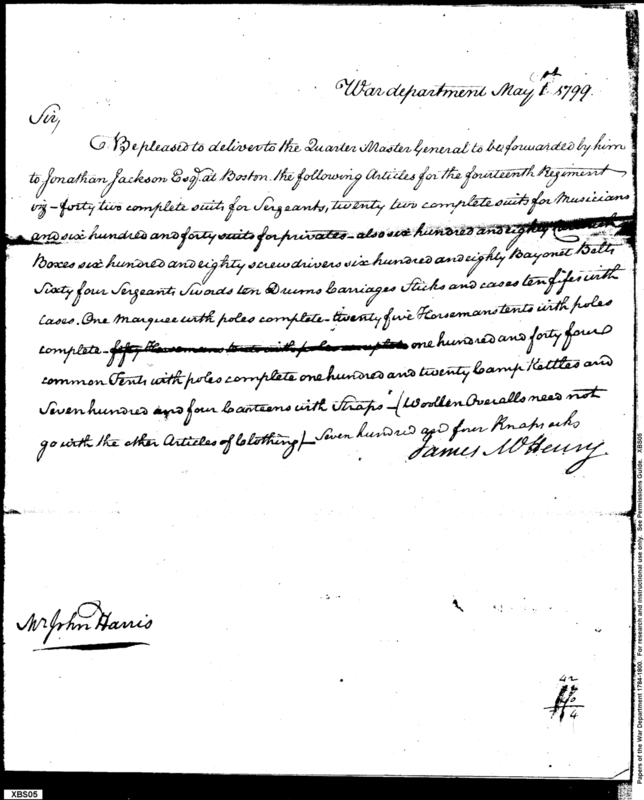 War department May 1st 1799.
Sir,
Be pleased to deliver to the Quarter Master General to be forwarded by him
to Jonathan Jackson Esqr. at Boston the following Articles for the fourteenth Regiment
viz - forty two complete suits for Sergeants, twenty two complete suits for Musicians
and six hundred and forty suits for privates - also six hundred and eighty Cartouch
Boxes six hundred and eighty screw drivers six hundred and eighty Bayonet Belts
Sixty four Sergeants Swords ten Drums Carriages Sticks and cases ten fifes with
cases. One Marquee with poles complete - twenty five Horsemans tents with poles
complete - fifty Horsemans tents with poles complete one hundred and forty four
common Tents with poles complete one hundred and twenty Camp Kettles and
Seven hundred and four Canteens with Straps - (Woollen Overalls need not
go with the other Articles of Clothing) - Seven hundred and four Knapsacks
James McHenry.
Mr John Harris
42
4
XBS05
Papers of the War Department 1784-1800. For research and instructional use only. See Permissions Guide. XBS05